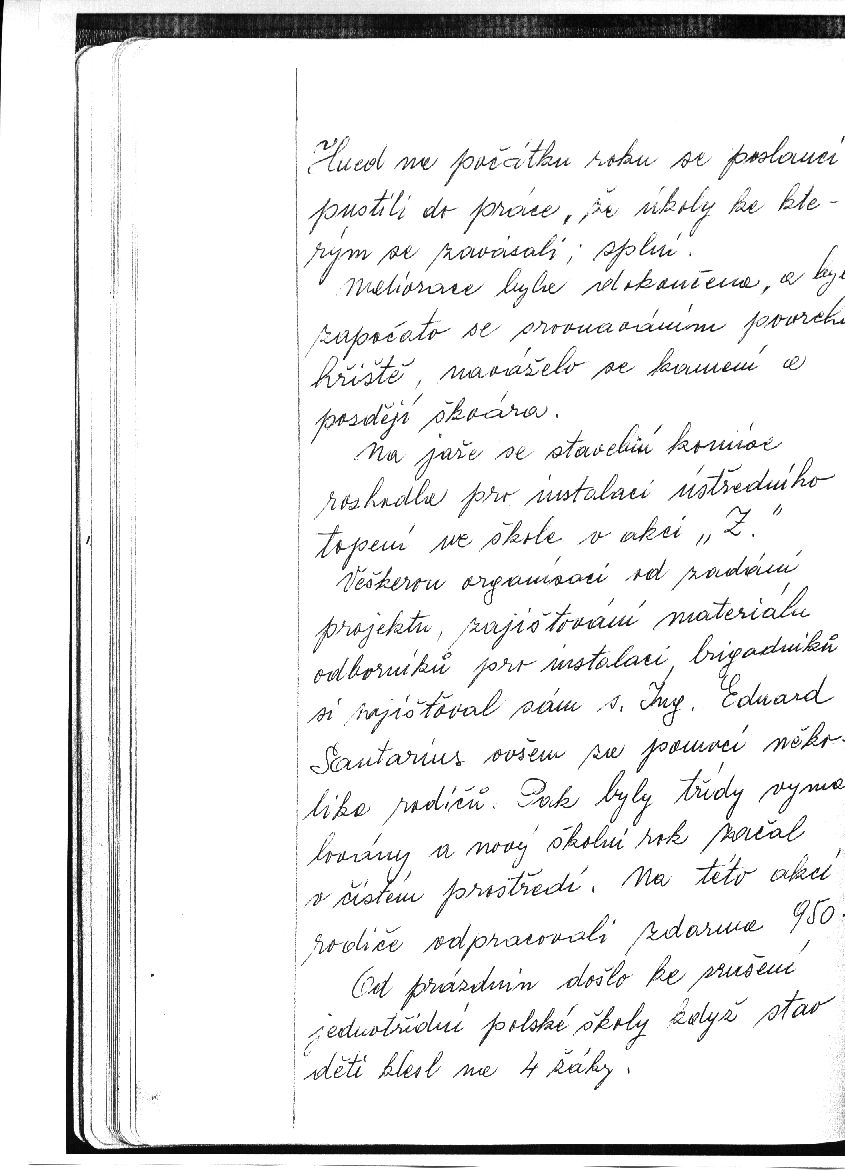 Hned na počátku roku se poslanci
pustili do práce, že úkoly ke kte-
rým se zavázali, splní.
Meliorace byla dokončena, a by
započato se srovnáváním povrch
hřiště, naváželo se kamení a
později škvára.
Na jaře se stavební komise
rozhodla pro instalaci ústředního
topení ve škole v akci „Z."
Veškerou organisaci od zadání
projektu, zajišťování materiálu
odborníků pro instalaci, brigadníků
si zajišťoval sám s. Ing. Eduard
Santarius ovšem za pomoci něko-
lika rodičů. Pak byly třídy vyma
lovány a nový školní rok začal
v čistém prostředí. Na této akci
rodiče odpracovali zdarma 950
Od prázdnin došlo ke zrušení
jednotřídní polské školy když stav
dětí klesl na 4 žáky.